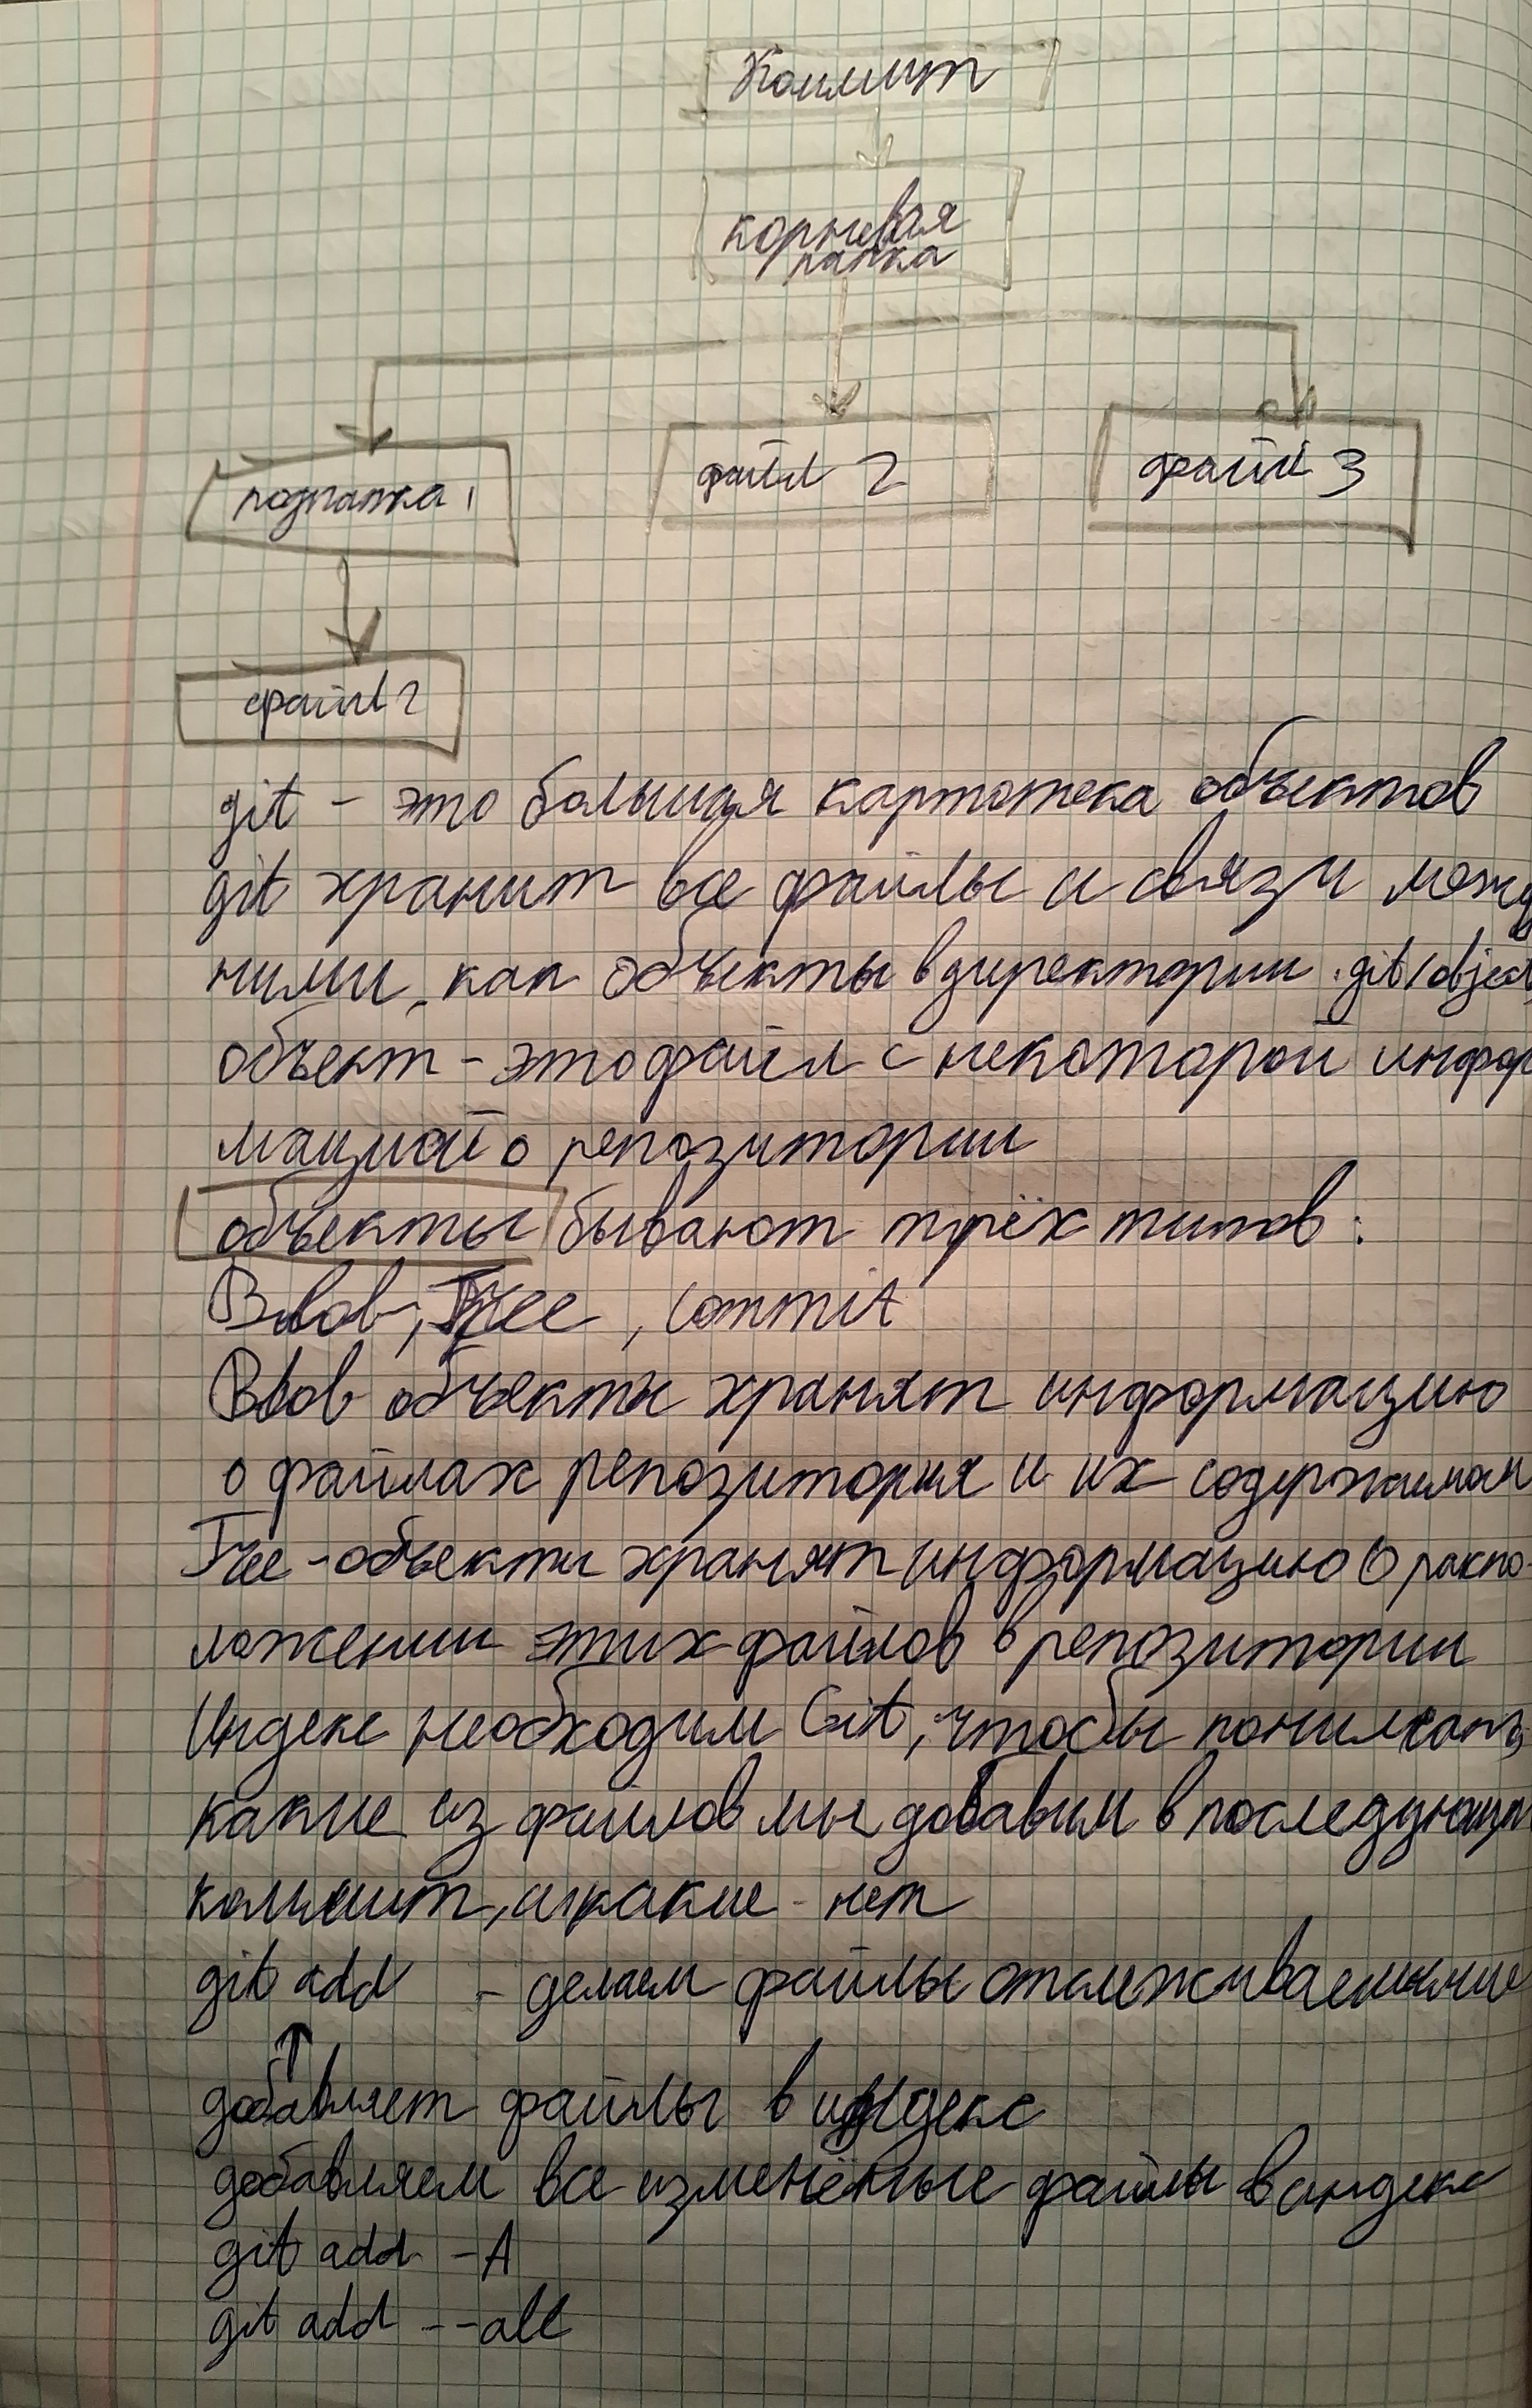 Коммит
корневая
папка
подпапка 1
файл 2
файл 3
файл 2
git - это большая картотека объектов
git хранит все файлы и связи межд
ними, как объекты в директории .git/object
объект - это файл с некоторой инфор
мацией о репозитории
объекты бывают трёх типов:
Blob, Tree, commit
Blob объекты хранят информацию
о файлах репозитория и их содержимом
Tree - объекты хранят информацию о распо-
ложении этих файлов в репозитории
Индекс необходим Git, чтобы понимать,
какие из файлов мы добавим в последующий
коммит, а какие - нет
git add - делаем файлы отслеживаемыми
добавляет файлы в индекс
добавляем все изменёные файлы в индекс
git add -A
git add --all